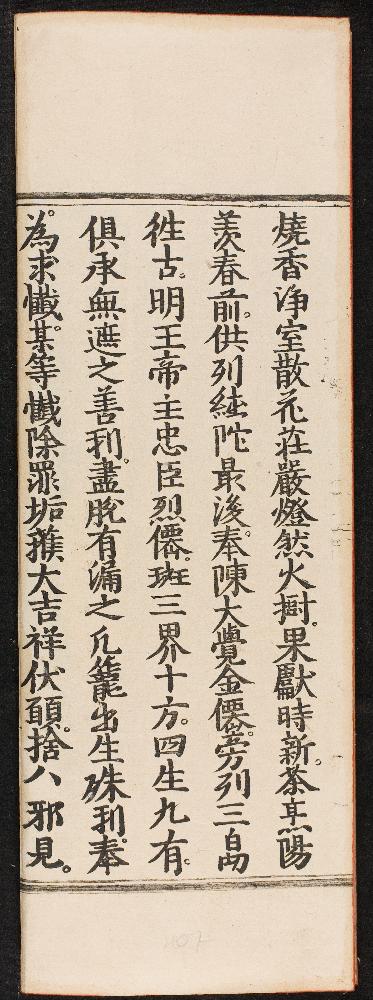 燒香淨室散花莊嚴燈然火樹。果獻時新。茶烹陽
羨春前。供列純陀最後。奉陳大覺金僊。旁列三
徃古。明王帝主忠臣烈僊班三界十方。四生九有。
俱承無遮之善利。盡脫有漏之凡籠出生殊利。奉
為求懺某等懺除罪垢獲大吉祥伏願。捨八邪見。